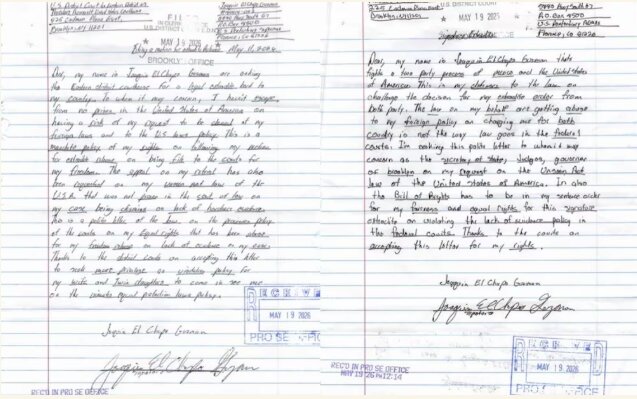 U.S. District Court
225 Cadman Plaza East
Brooklyn NY 11201
Joaquin El Chapo Guzman
Florence, Co 81226
FILED
U.S. DISTRICT COURT
★ MAY 19 2026 ★
BROOKLYN OFFICE
May 11, 2026
Dear, my name is Joaquin El Chapo Guzman am asking
the Eastern district courthouse for a legal extradite back to
my country to whom it may concern, I haven't escape
from no prison in the United States of America am
having a of my request to be denied of my
foreign laws and to the U.S. laws policy. This is a
mandate policy of my rights on following my motion
for on being file to the courts for
my freedom. The appeal on my retrial has also
been requested on my laws of the
U.S.A. that was not proven in the court of law on
my case being charges on lack of evidence.
This is a polite letter of the law on the policy
of the courts on my equal rights that has been
for my freedom on lack of evidence on my case.
Thanks to the district courts on accepting this letter
to seek more privilege on visitation policy for
my wife and twin daughters to come in see me
on the equal protection laws policy.
Joaquin El Chapo Guzman
Joaquin El Chapo Guzman
signature
RECEIVED
MAY 19 2026
PRO SE OFFICE
REC'D IN PRO SE OFFICE
225 Cadman Plaza East
Brooklyn NY 11201
U.S. DISTRICT COURT
★ MAY 19 2026 ★
P.O. Box 8500
U.S. Penitentiary ADMAX
Florence, Co 81226
Dear, my name is Joaquin El Chapo Guzman that
fights a two party process of and the United States
of America. This is my to the law on
challenge the decision for my order from
both party. The law on my behalf are getting abuse
to my foreign policy on charging me for both
country is not the way law goes in the federal
courts. I'm asking this polite letter to whom it may
concern as the secretary of state, Judges, governor
of brooklyn on my request on the Act
law of the United States of America. In also
the Bill of Rights has to be in my sentence order
for my fairness and equal rights for this signature
on violating the lack of evidence policy in
the federal courts. Thanks to the courts on
accepting this letter for my rights.
Joaquin El Chapo Guzman
Joaquin El Chapo Guzman
signature
REC'D IN PRO SE OFFICE
MAY 19 '26 PM12:14
RECEIVED
MAY 19 2026
PRO SE OFFICE